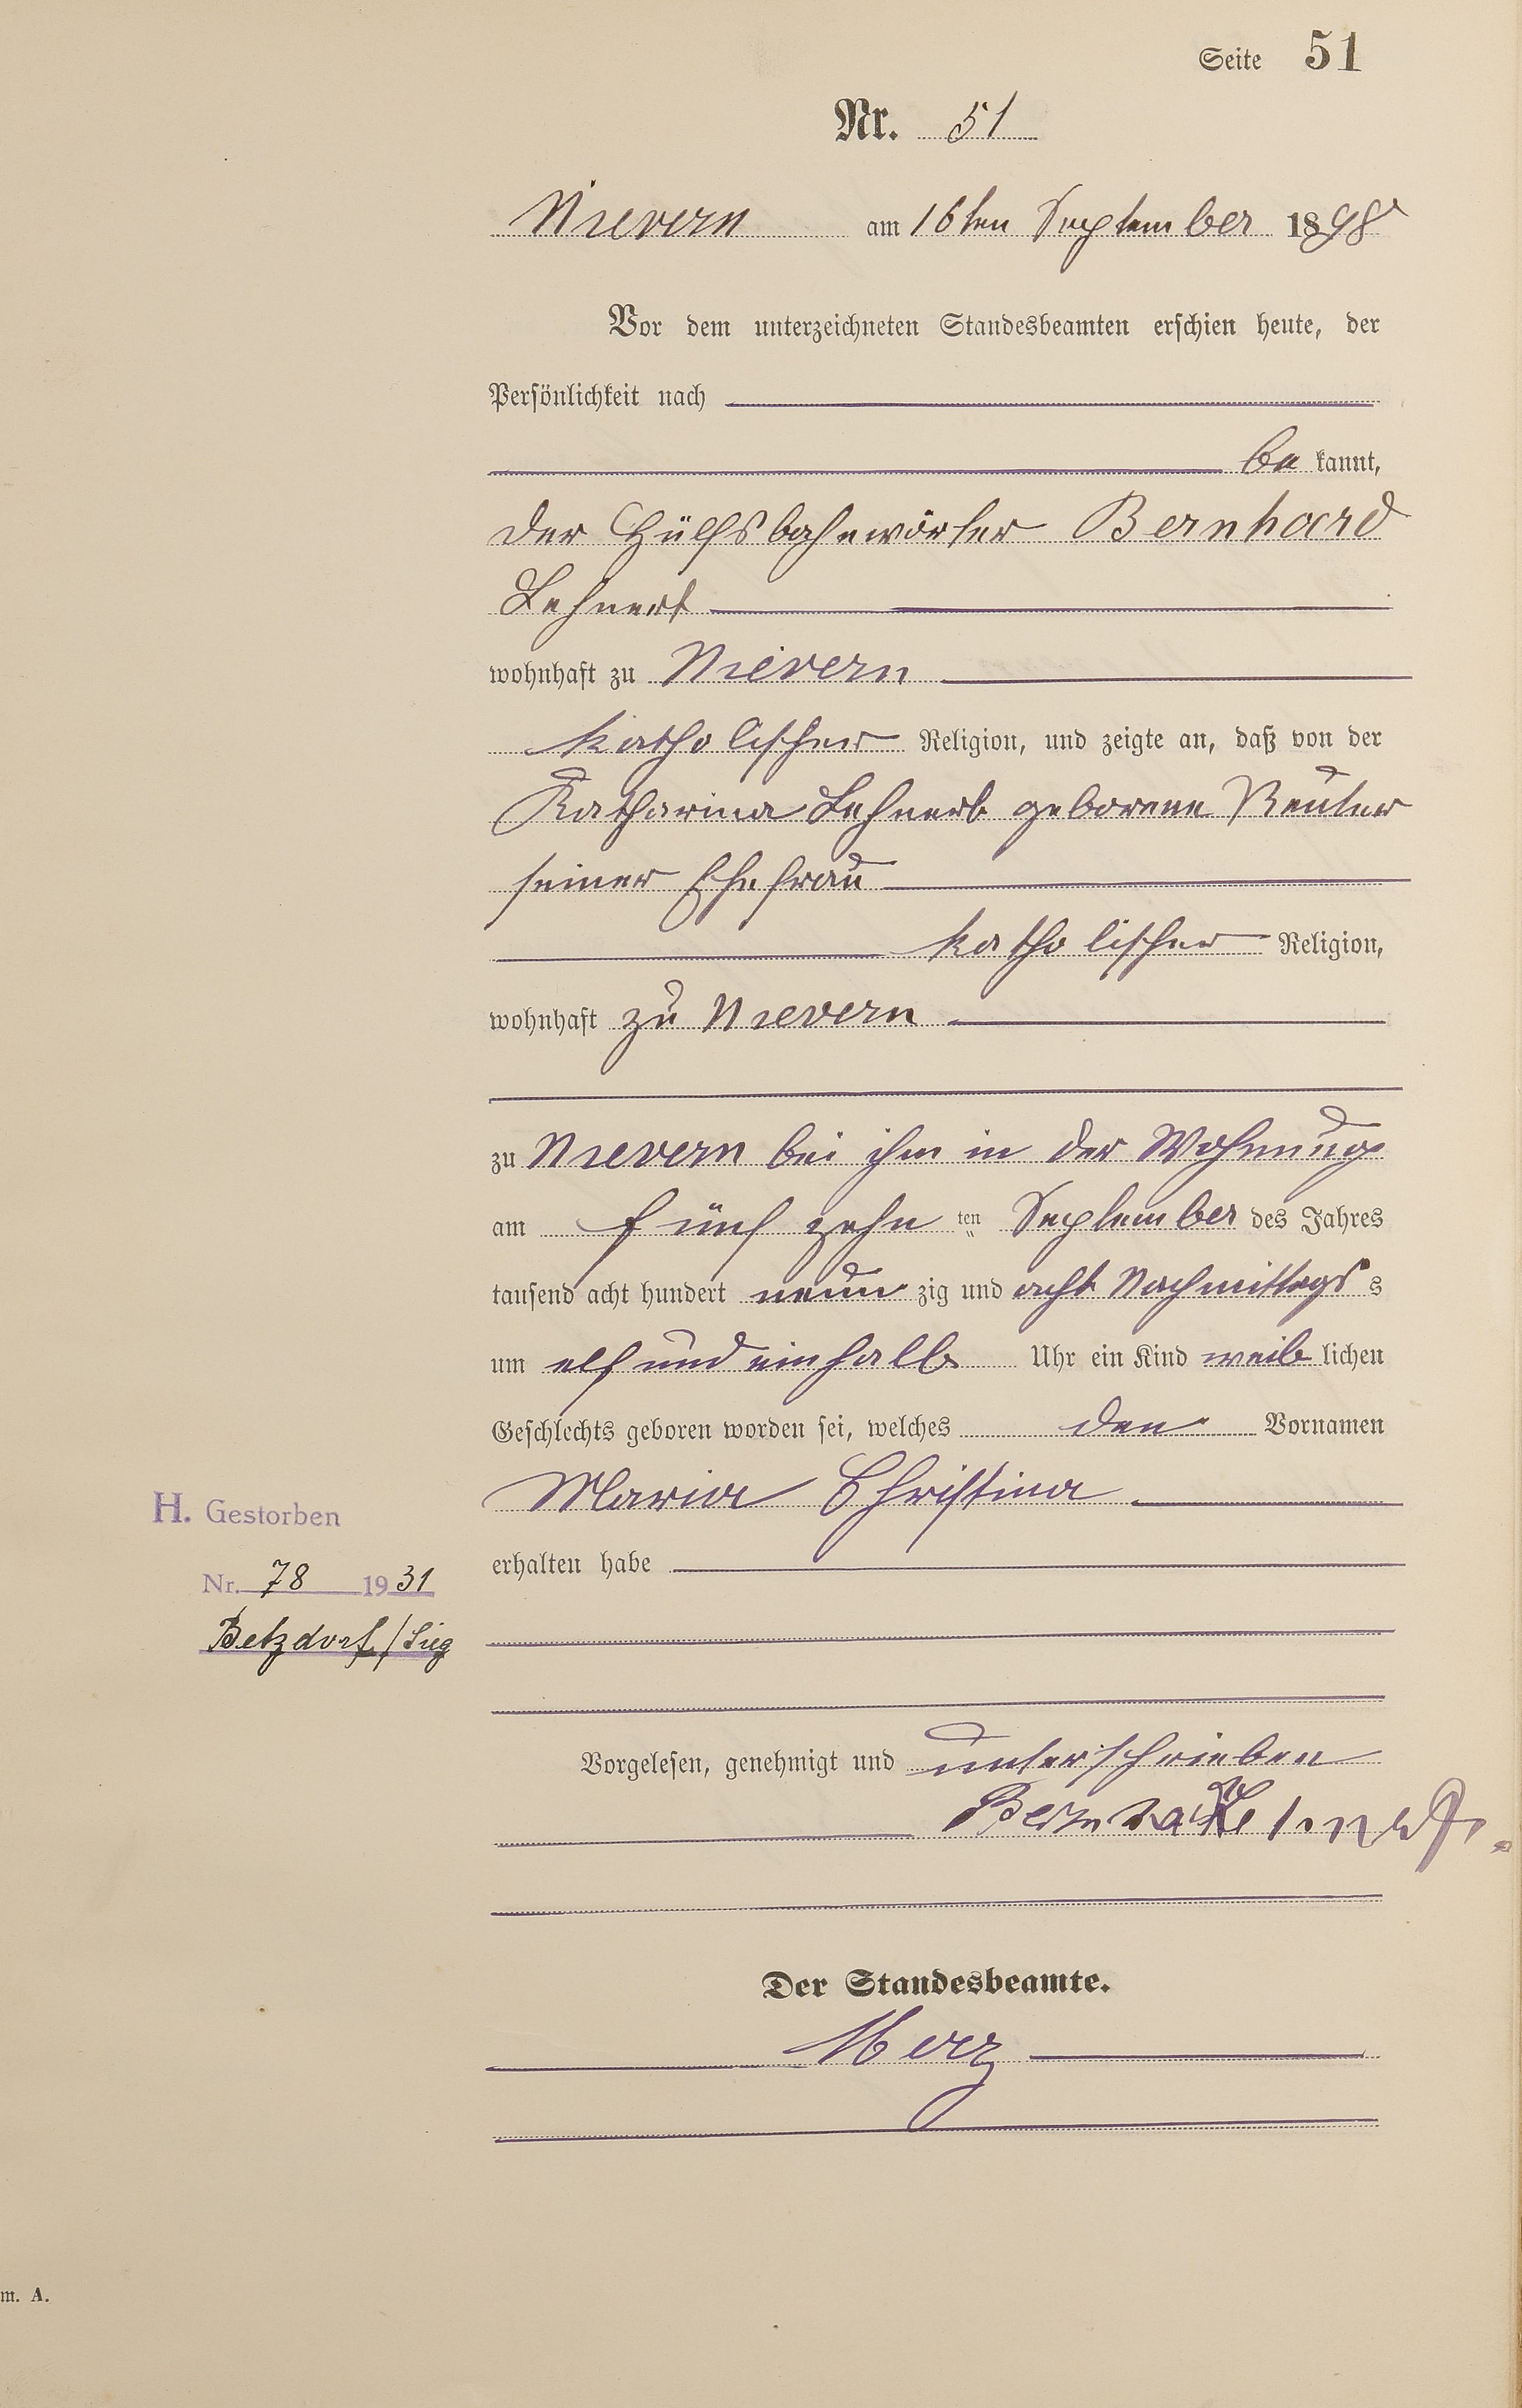 Seite 51
Nr. 51
Nievern am 16ten September 1898
Vor dem unterzeichneten Standesbeamten erschien heute, der
Persönlichkeit nach
be kannt,
der Hülfsbahnwärter Bernhard
Lehnert
wohnhaft zu Nievern
katholischer Religion, und zeigte an, daß von der
Katharina Lehnert geborene Reuter
seiner Ehefrau
katholischer Religion,
wohnhaft zu Nievern
zu Nievern bei ihm in der Wohnung
am fünfzehn ten September des Jahres
tausend acht hundert neun zig und acht Nachmittags s
um elf und einhalb Uhr ein Kind weib lichen
Geschlechts geboren worden sei, welches den Vornamen
Maria Christina
H. Gestorben
erhalten habe
Nr. 78 1931
Betzdorf/Sieg
Vorgelesen, genehmigt und unterschrieben
Bernhard Lehnert.
Der Standesbeamte.
Merz
m. A.